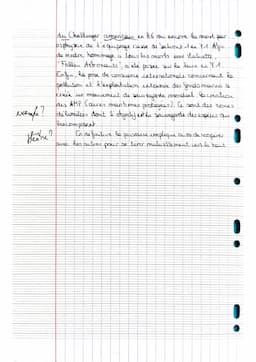 du Challenger américain en 86 ou encore la mort par
asphyxie de l'équipage russe de Saliout 1 en 71. Afin
de rendre hommage à tous les morts une statuette,
"Fallen Astronauts", a été posée sur la lune en 71.
Enfin, la prise de conscience internationale concernant la
pollution et l'exploitation intensive des fonds marins a
créé un mouvement de sauvegarde mondial: la création
exemple?
des AMP (aires maritimes protégées). Ce sont des zones
délimitées dont l'objectif est la sauvegarde des espèces qui
les composent.
En définitive la puissance implique aussi de coopérer
avec les autres pour se tirer mutuellement vers le haut.